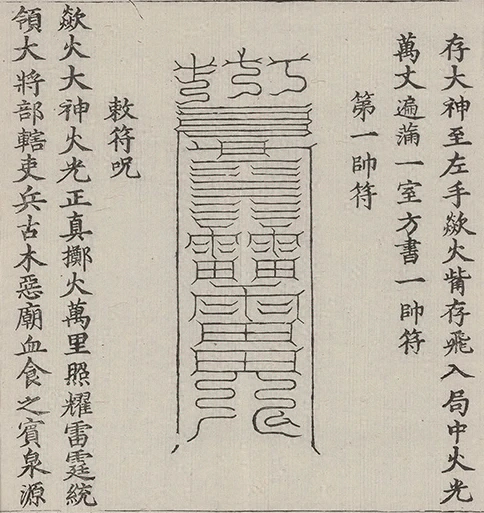 存大神至左手歘火觜存飛入局中火光
萬丈遍蒲一室方書一帥符
第一帥符
敕符呪
歘火大神火光正真擲火萬里照耀雷霆統
領大將部轄吏兵古木惡廟血食之賓泉源